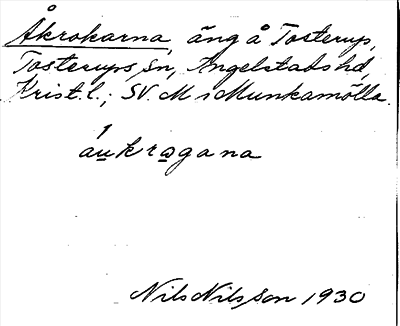 Åkrokarna, äng å Tosterup,
Tosterups sn, Ingelstads hd,
Krist. l.; SV. M i Munkamölla.
áu̲kro̲gana
Nils Nilsson 1930